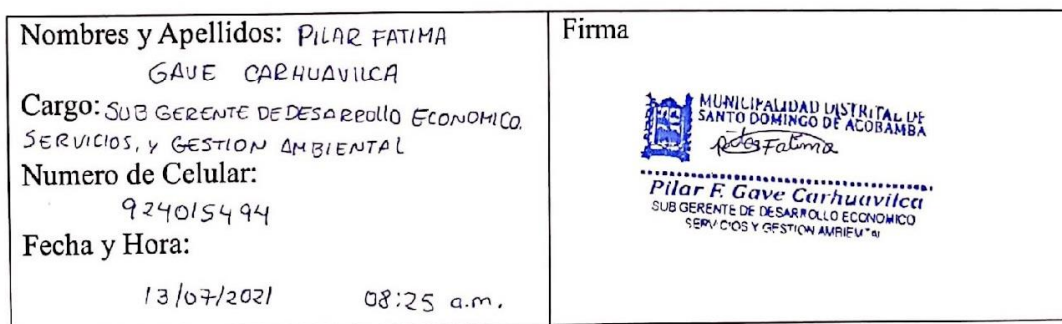 Nombres y Apellidos: PILAR FATIMA
GAVE CARHUAVILCA
Cargo: SUB GERENTE DE DESARROLLO ECONOMICO.
SERVICIOS, Y GESTION AMBIENTAL
Numero de Celular:
924015494
Fecha y Hora:
13/07/2021 08:25 a.m.
Firma
MUNICIPALIDAD DISTRITAL DE
SANTO DOMINGO DE ACOBAMBA
Fatima
Pilar F. Gave Carhuavilca
SUB GERENTE DE DESARROLLO ECONOMICO
SERVICIOS Y GESTION AMBIENTAL